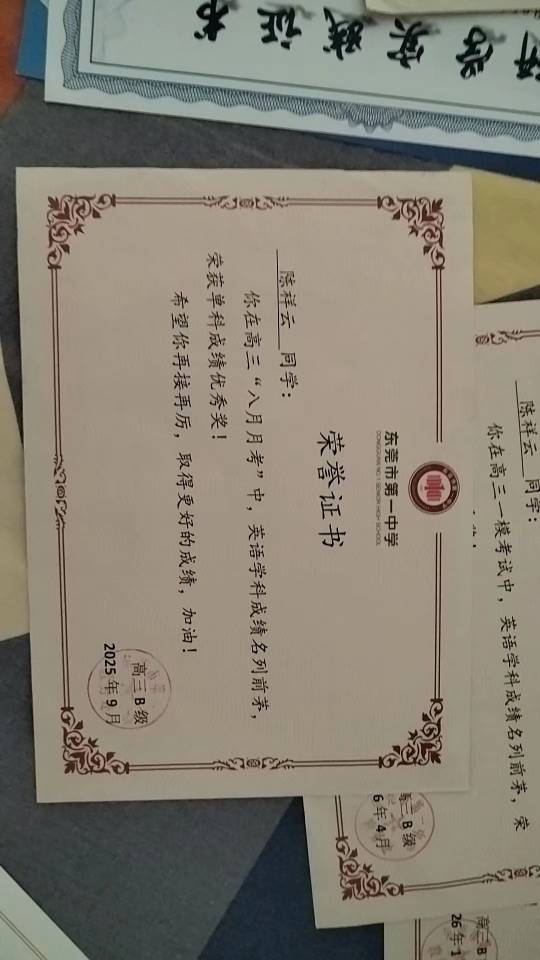 东莞市第一中学
DONGGUAN NO.1 SENIOR HIGH SCHOOL
荣誉证书
陈祥云 同学：
你在高三“八月月考”中，英语学科成绩名列前茅，
荣获单科成绩优秀奖！
希望你再接再厉，取得更好的成绩，加油！
高三B级
2025年9月
陈祥云 同学：
你在高三一模考试中，英语学科成绩名列前茅，荣
高三B级
6年4月
高三B
26年1
实践证书